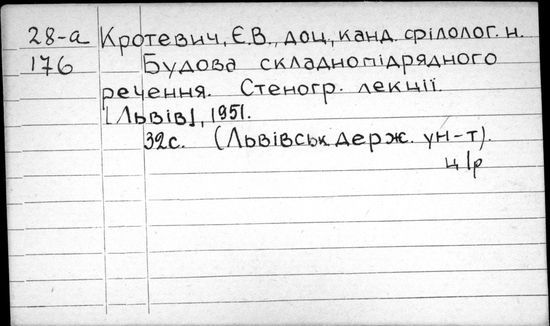 28-а Кротевич, Є.В., доц., канд. філолог. н.
176 Будова складнопідрядного
речення. Стеногр. лекції.
[Львів], 1951.
32с. (Львівськ держ. ун-т).
ц/р